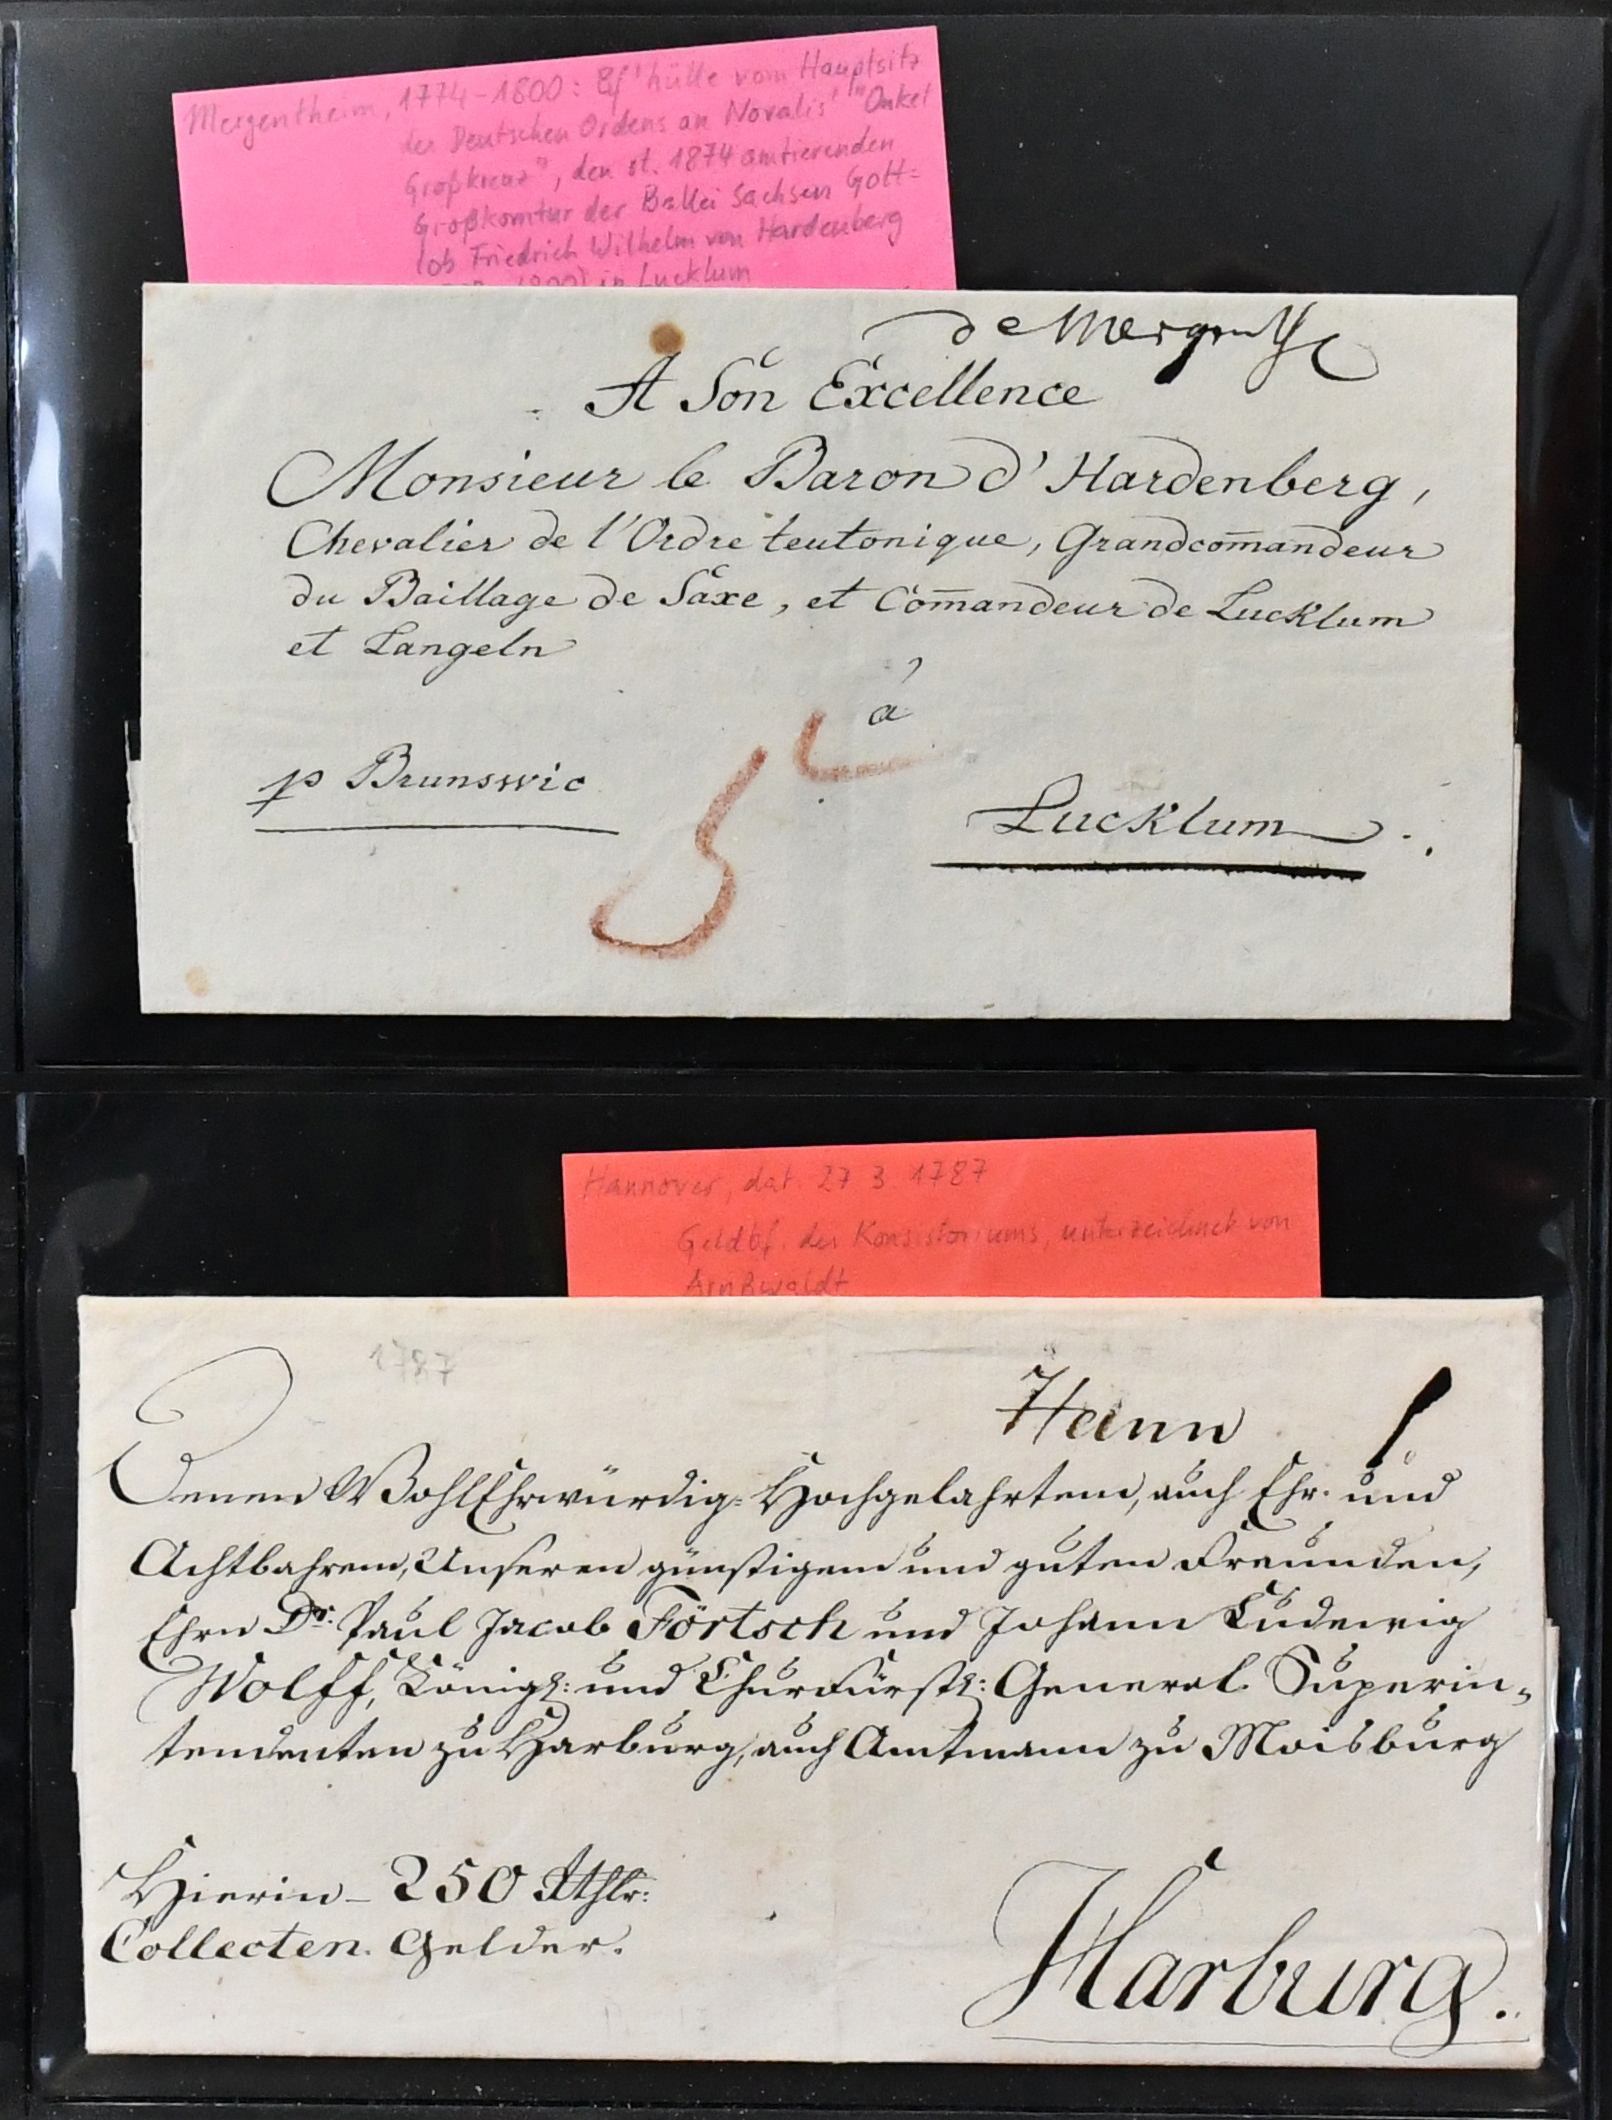 Mergentheim, 1774-1800: Bf'hülle vom Hauptsitz
des Deutschen Ordens an Novalis' "Onkel
Großkreuz", den st. 1874 amtierenden
Großkomtur der Ballei Sachsen Gott=
lob Friedrich Wilhelm von Hardenberg
1800) in Lucklum
de Mergenth
A Son Excellence
Monsieur le Baron d'Hardenberg,
Chevalier de l'Ordre teutonique, Grandcom̄andeur
du Baillage de Saxe, et Com̄andeur de Lucklum
et Langeln
à
p Brunswic
Lucklum
Hannover, dat. 27 3. 1787
Geldbf. des Konsistoriums, unterzeichnet von
Arnßwaldt
1787
Hann
Denen WohlEhrwürdig- Hochgelahrten, auch Ehr- und
Achtbahren, Unseren günstigen und guten Freunden,
Ehrn Dr: Paul Jacob Förtsch und Johann Ludewig
Wolff, Königl: und Churfürstl: General Superin-
tendenten zu Harburg, auch Amtmann zu Moisburg
Hierin - 250 Rthlr:
Collecten Gelder.
Harburg.